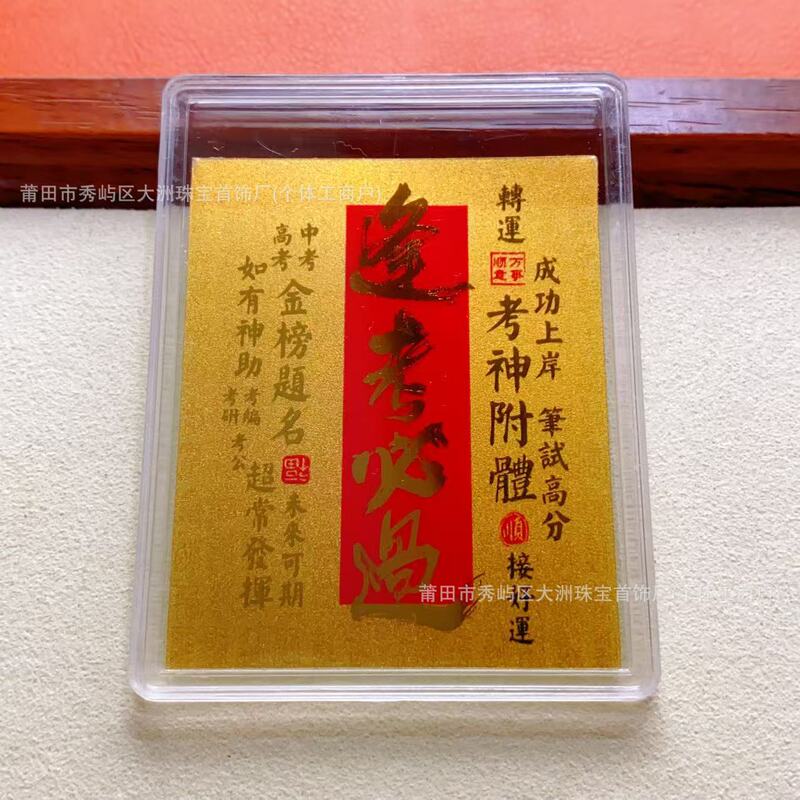 莆田市秀屿区大洲珠宝首饰厂(个体工商户)
轉運
万事
順意
成功上岸 筆試高分
考神附體
順
接好運
逢考必過
中考
高考
金榜題名
如有神助
考編
考研
考公
未來可期
超常發揮
莆田市秀屿区大洲珠宝首饰厂